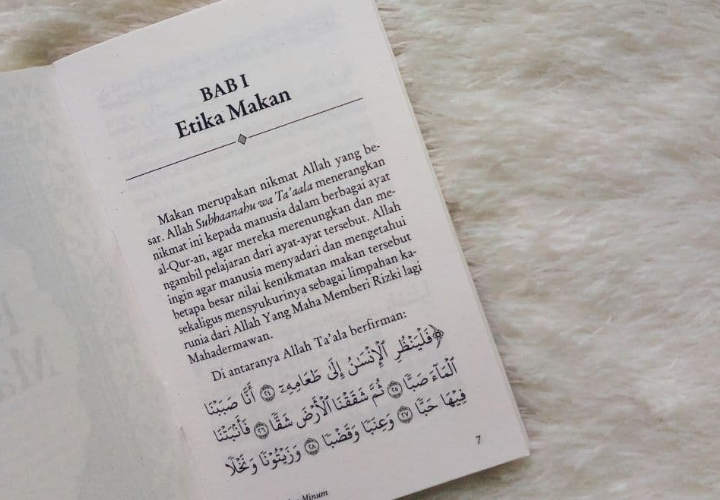 BAB I
Etika Makan
Makan merupakan nikmat Allah yang be-
sar. Allah Subhaanahu wa Ta'aala menerangkan
nikmat ini kepada manusia dalam berbagai ayat
al-Qur-an, agar mereka merenungkan dan me-
ngambil pelajaran dari ayat-ayat tersebut. Allah
ingin agar manusia menyadari dan mengetahui
betapa besar nilai kenikmatan makan tersebut
sekaligus mensyukurinya sebagai limpahan ka-
runia dari Allah Yang Maha Memberi Rizki lagi
Mahadermawan.
Di antaranya Allah Ta'ala berfirman:
﴿فَلْيَنظُرِ ٱلْإِنسَـٰنُ إِلَىٰ طَعَامِهِۦٓ ٢٤ أَنَّا صَبَبْنَا
ٱلْمَآءَ صَبًّا ٢٥ ثُمَّ شَقَقْنَا ٱلْأَرْضَ شَقًّا ٢٦ فَأَنۢبَتْنَا
فِيهَا حَبًّا ٢٧ وَعِنَبًا وَقَضْبًا ٢٨ وَزَيْتُونًا وَنَخْلًا
7
Minum